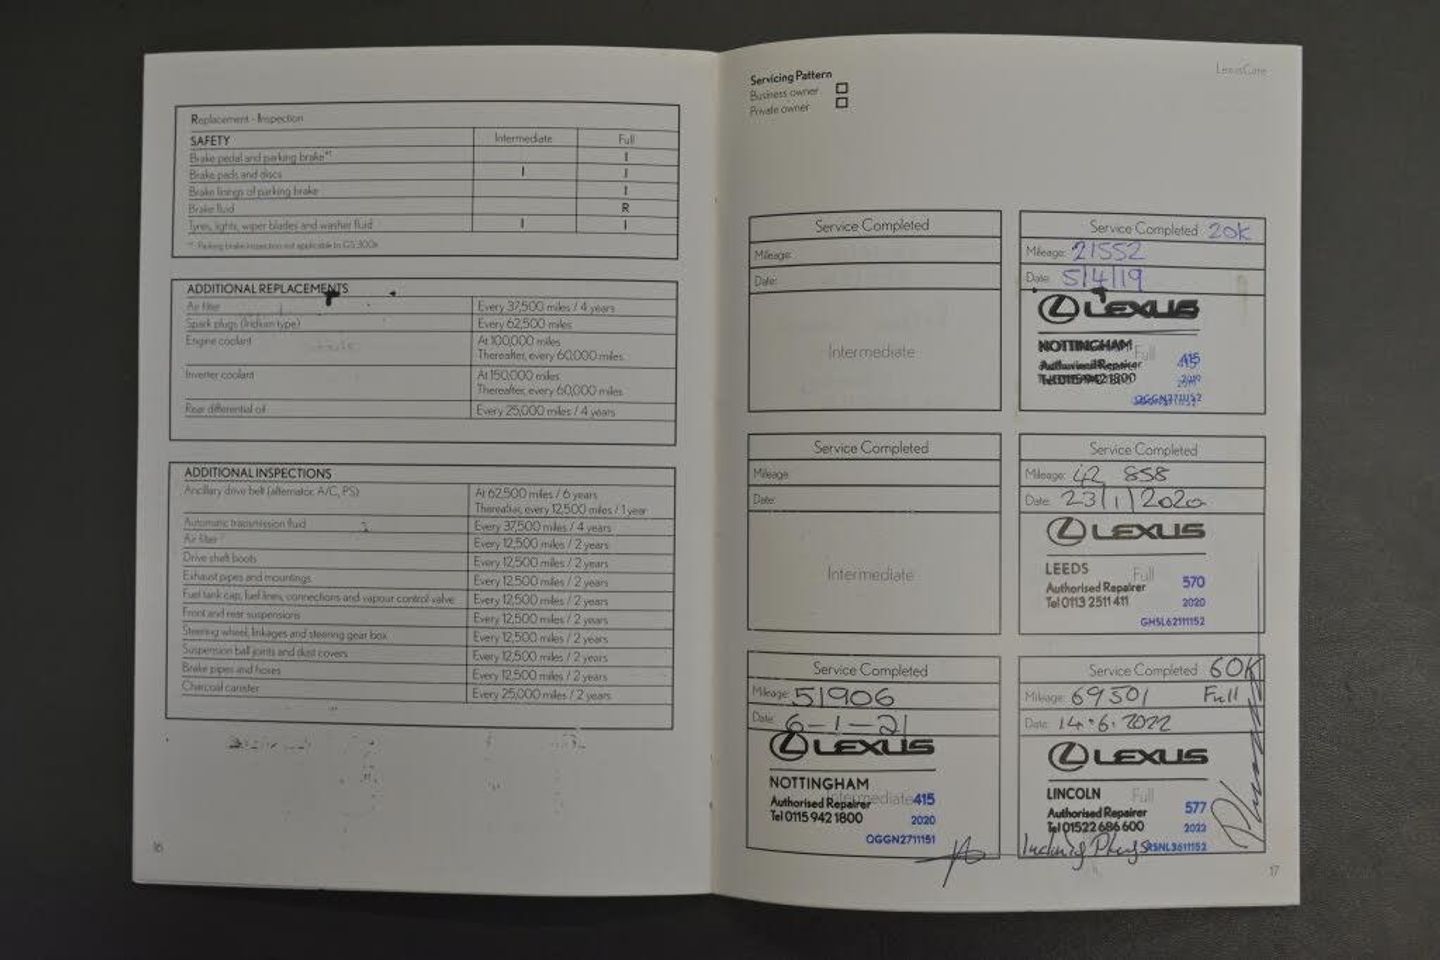 Replacement - Inspection
SAFETY Intermediate Full
Brake pedal and parking brake*¹ I
Brake pads and discs I I
Brake linings of parking brake I
Brake fluid R
Tyres, lights, wiper blades and washer fluid I I
*¹ Parking brake inspection not applicable to GS 300h
ADDITIONAL REPLACEMENTS
Air filter Every 37,500 miles / 4 years
Spark plugs (Iridium type) Every 62,500 miles
Engine coolant At 100,000 miles
Thereafter, every 60,000 miles
Inverter coolant At 150,000 miles
Thereafter, every 60,000 miles
Rear differential oil Every 25,000 miles / 4 years
ADDITIONAL INSPECTIONS
Ancillary drive belt (alternator, A/C, PS) At 62,500 miles / 6 years
Thereafter, every 12,500 miles / 1 year
Automatic transmission fluid Every 37,500 miles / 4 years
Air filter Every 12,500 miles / 2 years
Drive shaft boots Every 12,500 miles / 2 years
Exhaust pipes and mountings Every 12,500 miles / 2 years
Fuel tank cap, fuel lines, connections and vapour control valve Every 12,500 miles / 2 years
Front and rear suspensions Every 12,500 miles / 2 years
Steering wheel, linkages and steering gear box Every 12,500 miles / 2 years
Suspension ball joints and dust covers Every 12,500 miles / 2 years
Brake pipes and hoses Every 12,500 miles / 2 years
Charcoal canister Every 25,000 miles / 2 years
16
LexusCare
Servicing Pattern
Business owner
Private owner
Service Completed
Mileage:
Date:
Intermediate
Service Completed 20K
Mileage: 21552
Date: 5/4/19
LEXUS
NOTTINGHAM
Full
Authorised Repairer 415
Tel 0115 942 1800 2019
Service Completed
Mileage:
Date:
Intermediate
Service Completed
Mileage: 42 858
Date: 23/1/2020
LEXUS
LEEDS
Full
Authorised Repairer 570
Tel 0113 2511 411 2020
GHSL62111152
Service Completed
Mileage: 51906
Date: 6-1-21
LEXUS
NOTTINGHAM
Intermediate
Authorised Repairer 415
Tel 0115 942 1800 2020
OGGN2711151
Service Completed 60K
Mileage: 69501 Full
Date: 14.6.2022
LEXUS
LINCOLN
Full
Authorised Repairer 577
Tel 01522 686 600 2022
Including Plugs RSNL3611152
17